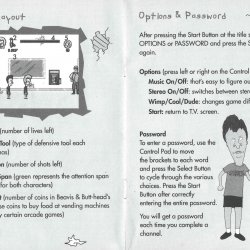 ayout
(number of lives left)
Tool (type of defensive tool each
has)
on (number of shots left)
Span (green represents the attention span
for both characters)
t (number of coins in Beavis & Butt-head's
se coins to buy food at vending machines
y certain arcade games)
Options & Password
After pressing the Start Button at the title s
OPTIONS or PASSWORD and press the S
again.
Options (press left or right on the Control
Music On/Off: that's easy to figure ou
Stereo On/Off: switches between stere
Wimp/Cool/Dude: changes game di
Start: return to T.V. screen.
Password
To enter a password, use the
Control Pad to move
the brackets to each word
and press the Select Button
to cycle through the various
choices. Press the Start
Button after correctly
entering the entire password.
You will get a password
each time you complete a
channel.